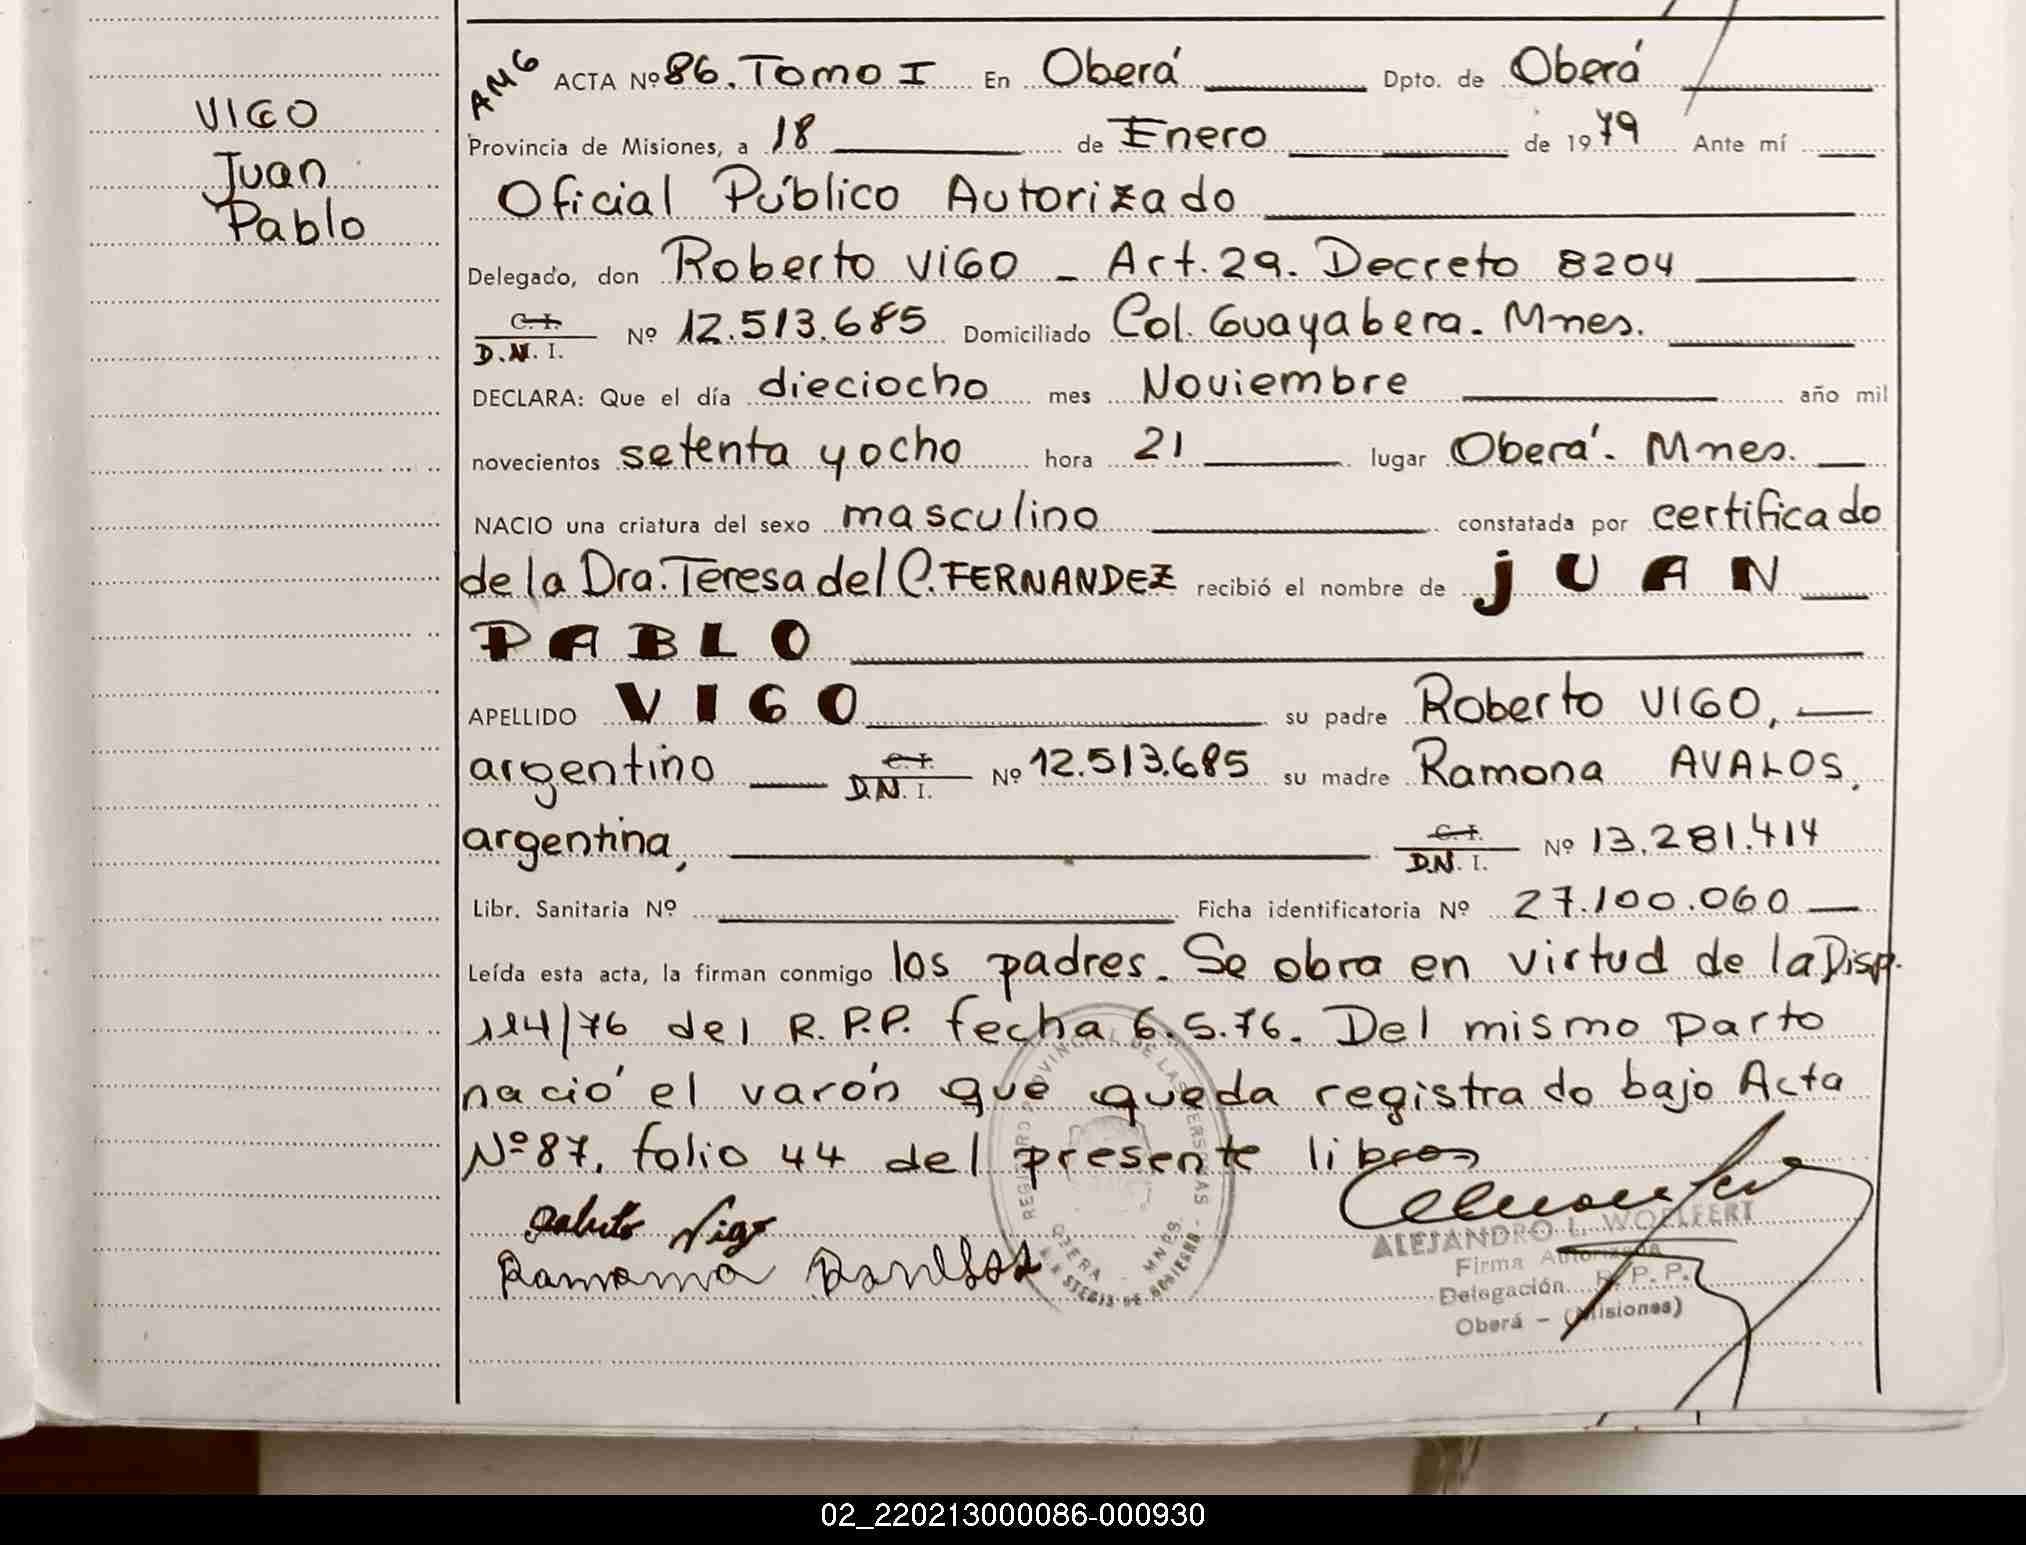 VIGO
Juan
Pablo
AMG ACTA Nº 86. Tomo I En Oberá Dpto. de Oberá
Provincia de Misiones, a 18 de Enero de 1979 Ante mí
Oficial Público Autorizado
Delegado, don Roberto VIGO - Art. 29. Decreto 8204
C. I.
D.N. I. Nº 12.513.685 Domiciliado Col. Guayabera. Mnes.
DECLARA: Que el día dieciocho mes Noviembre año mil
novecientos setenta y ocho hora 21 lugar Oberá. Mnes.
NACIO una criatura del sexo masculino constatada por certificado
de la Dra. Teresa del C. FERNANDEZ recibió el nombre de JUAN
PABLO
APELLIDO VIGO su padre Roberto VIGO,
argentino C. I. D.N. I. Nº 12.513.685 su madre Ramona AVALOS,
argentina, C. I. D.N. I. Nº 13.281.414
Libr. Sanitaria Nº Ficha identificatoria Nº 27.100.060
Leída esta acta, la firman conmigo los padres. Se obra en virtud de la Disp.
114/76 del R.P.P. fecha 6.5.76. Del mismo parto
nació el varón que queda registrado bajo Acta
Nº 87, folio 44 del presente libro
REGISTRO PROVINCIAL DE LAS PERSONAS
OBERA - MNES.
Roberto Vigo
Ramona
ALEJANDRO L. WOELFERT
Firma Autorizada
Delegación R. P. P.
Oberá - (Misiones)
02_220213000086-000930